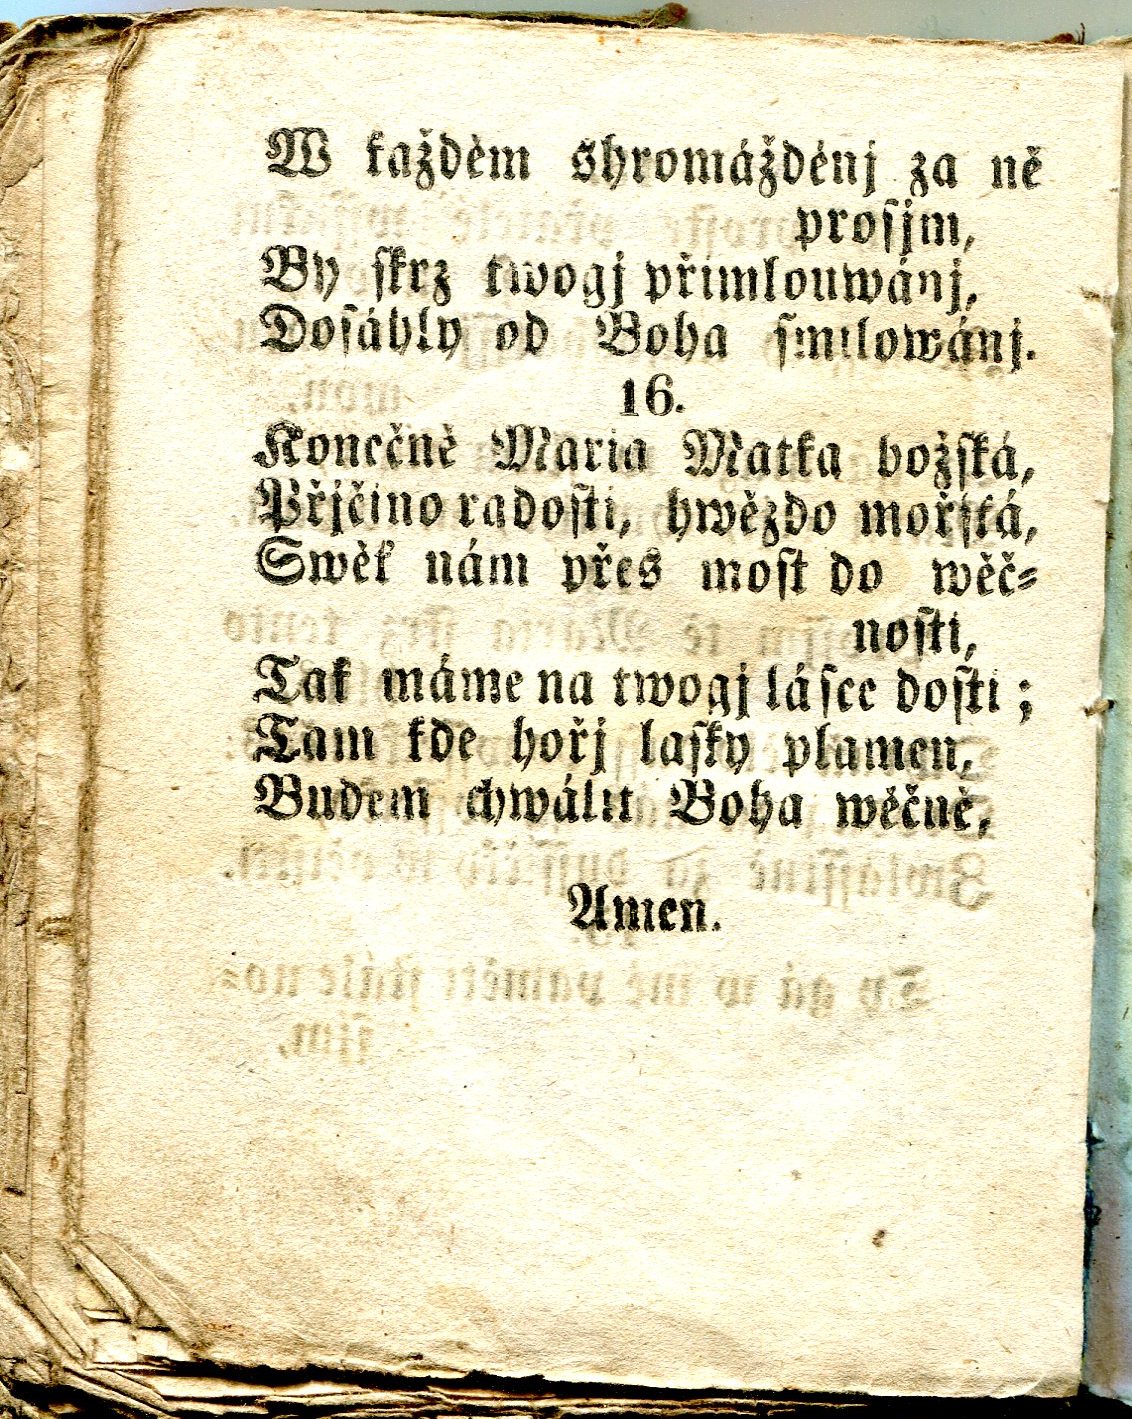 W každém shromážděnj za ně
prosjm,
By skrz twogj přimlouwánj,
Dosáhly od Boha smilowánj.
16.
Konečně Maria Matka božská,
Přjčino radosti, hwězdo mořská,
Swěť nám přes most do wěč-
nosti,
Tak máme na twogj lásce dosti;
Tam kde hořj lasky plamen,
Budem chwálit Boha wěčně,
Amen.